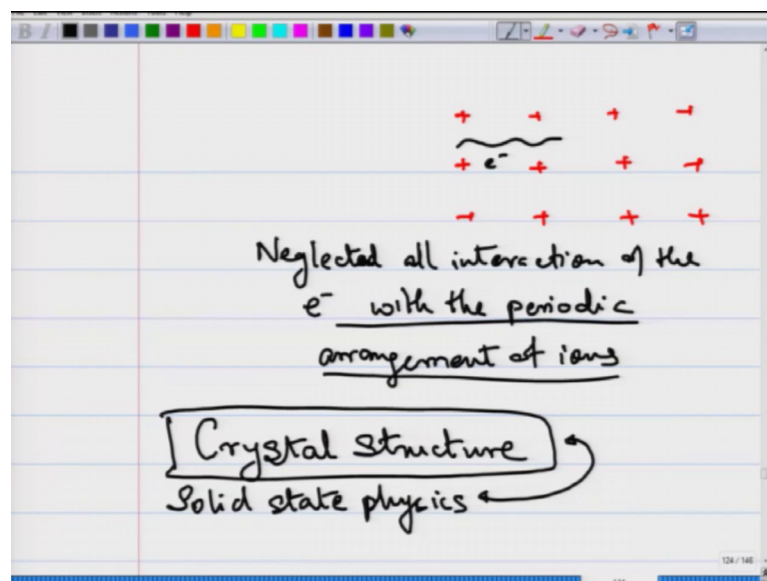 + + + +
+ e⁻ + + +
+ + + +
Neglected all interaction of the
e⁻ with the periodic
arrangement of ions
Crystal structure
Solid state physics
124 / 146